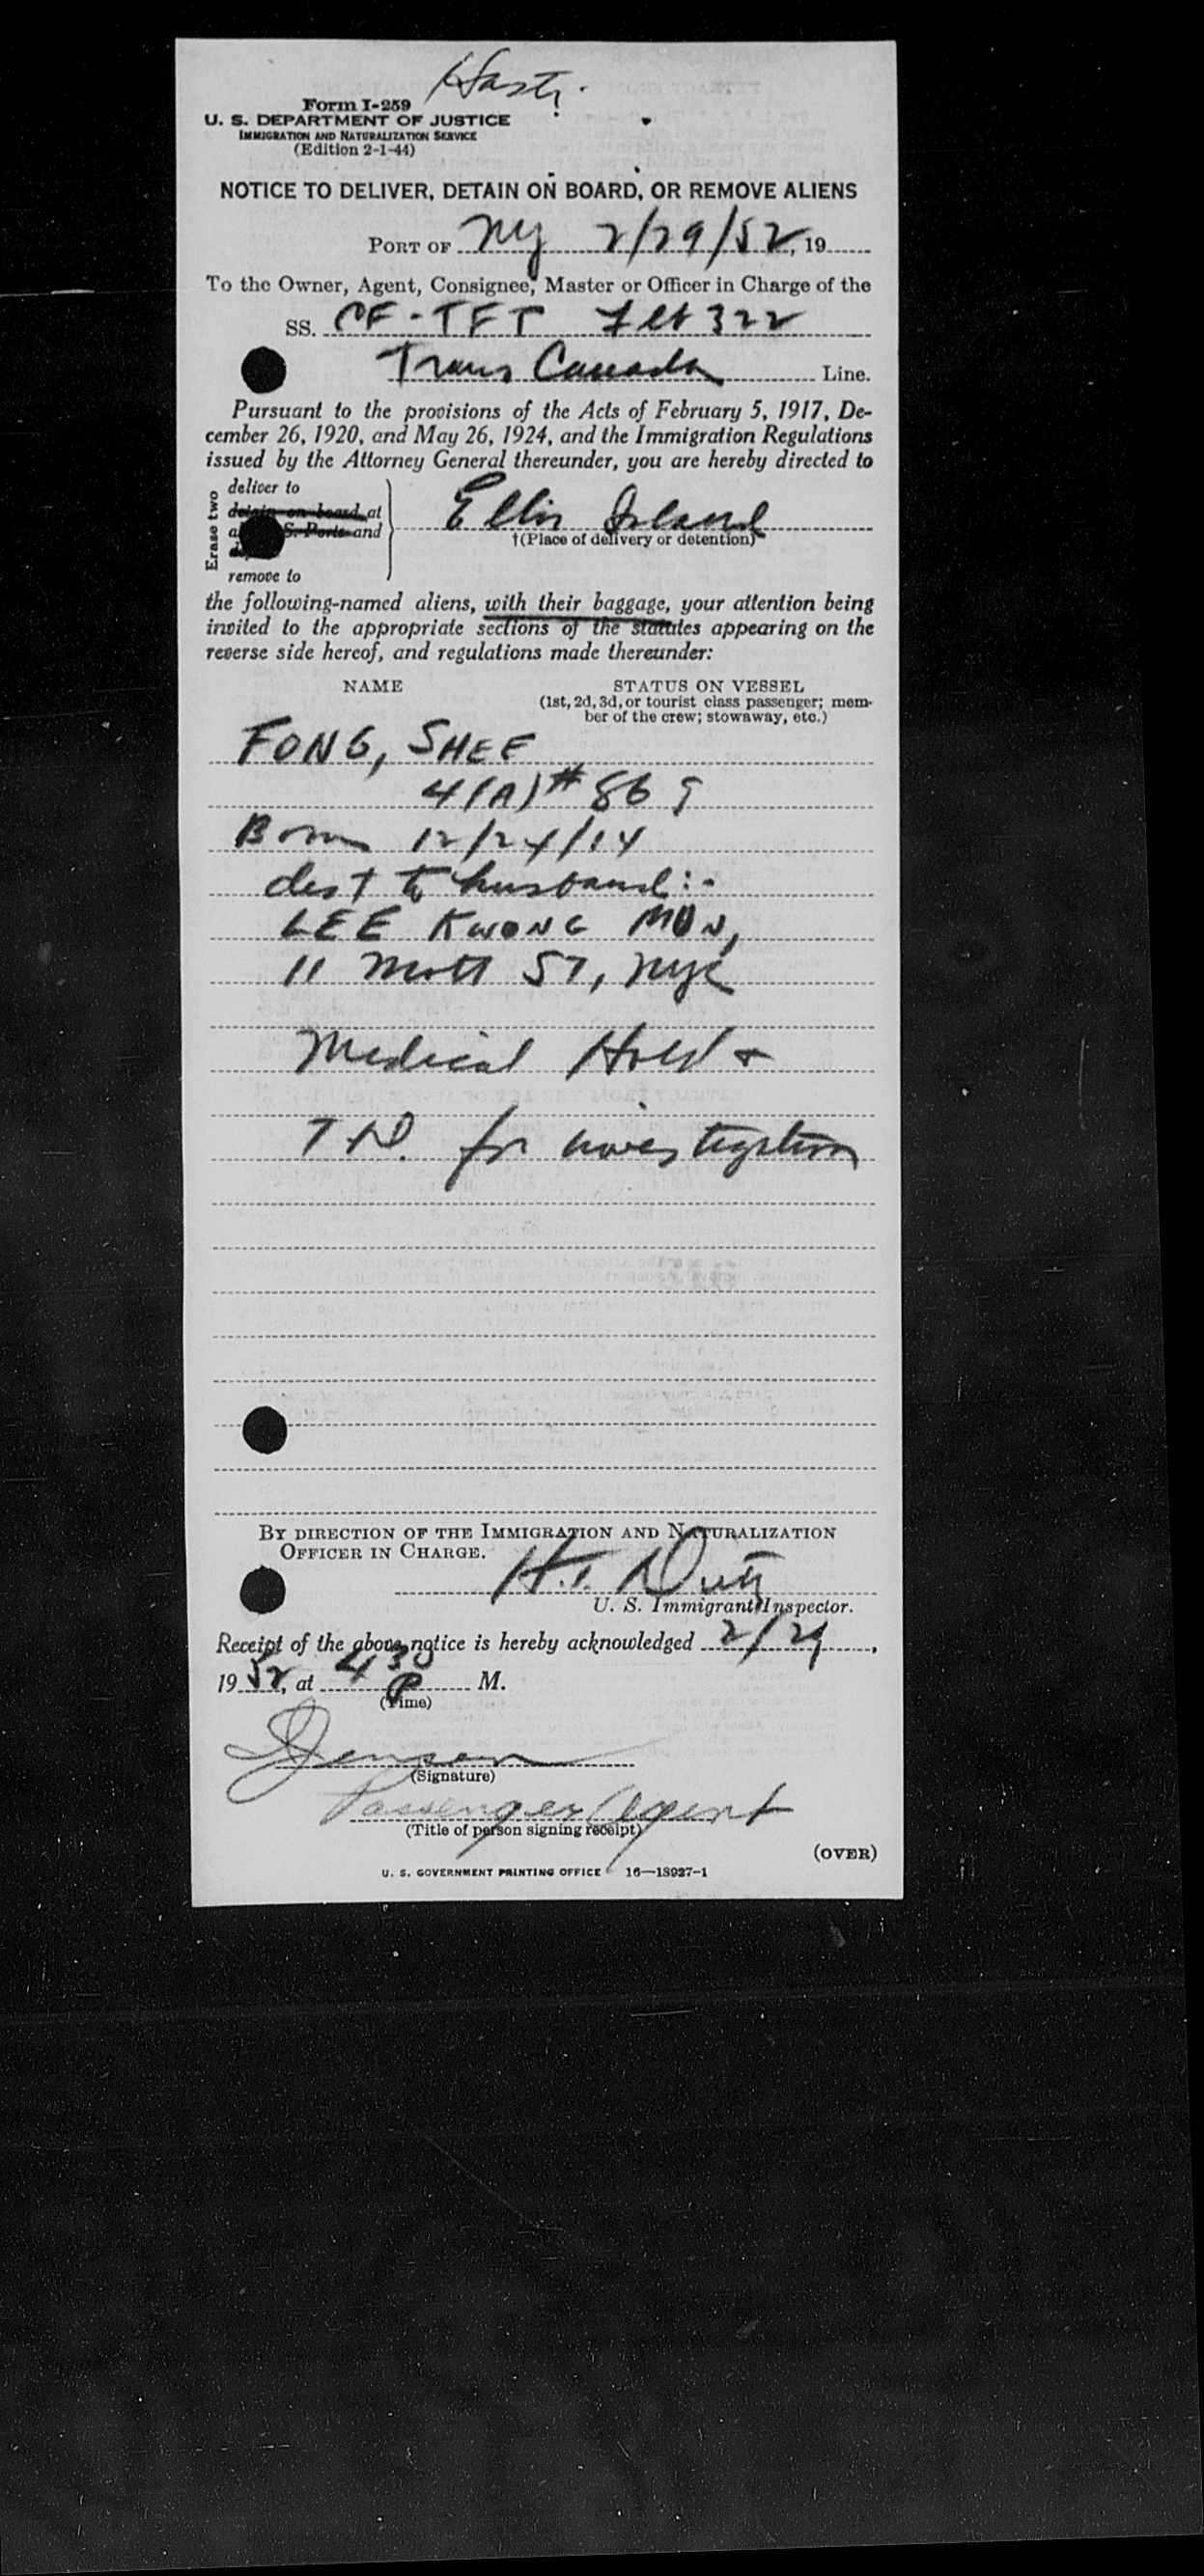 Form I-259
U. S. DEPARTMENT OF JUSTICE
IMMIGRATION AND NATURALIZATION SERVICE
(Edition 2-1-44)
NOTICE TO DELIVER, DETAIN ON BOARD, OR REMOVE ALIENS
PORT OF NY 2/29/52, 19
To the Owner, Agent, Consignee, Master or Officer in Charge of the
SS. CF-TFT Flt 322
Trans Canada Line.
Pursuant to the provisions of the Acts of February 5, 1917, De-
cember 26, 1920, and May 26, 1924, and the Immigration Regulations
issued by the Attorney General thereunder, you are hereby directed to
Erase two
deliver to
detain on board at
S. Ports and
remove to
Ellis Island
†(Place of delivery or detention)
the following-named aliens, with their baggage, your attention being
invited to the appropriate sections of the statutes appearing on the
reverse side hereof, and regulations made thereunder:
NAME STATUS ON VESSEL
(1st, 2d, 3d, or tourist class passenger; mem-
ber of the crew; stowaway, etc.)
FONG, SHEE
4(A) # 869
Born 12/24/14
dest to husband:-
LEE KWONG MUN,
11 Mott ST, NYC
Medical Hold +
T.D. for investigation
BY DIRECTION OF THE IMMIGRATION AND NATURALIZATION
OFFICER IN CHARGE.
H.
U. S. Immigrant Inspector.
Receipt of the above notice is hereby acknowledged 2/29,
19 52, at 4 30 P M.
(Time)
Jensen
(Signature)
Passenger Agent
(Title of person signing receipt)
(OVER)
U. S. GOVERNMENT PRINTING OFFICE 16—13927-1